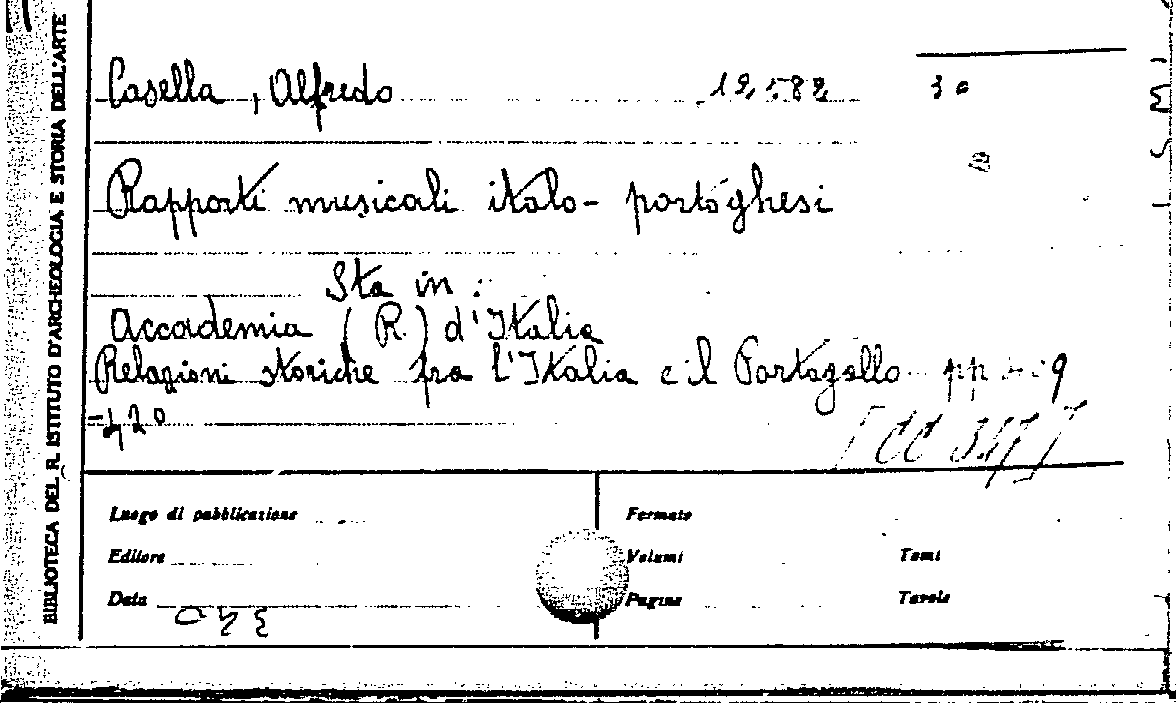 BIBLIOTECA DEL R. ISTITUTO D'ARCHEOLOGIA E STORIA DELL'ARTE
Casella, Alfredo 19,582 30
Rapporti musicali italo-portoghesi
Sta in:
Accademia (R.) d'Italia
Relazioni storiche fra l'Italia e il Portogallo pp
-420
Luogo di pubblicazione Formato
Editore Volumi Tomi
Data Pagine Tavole